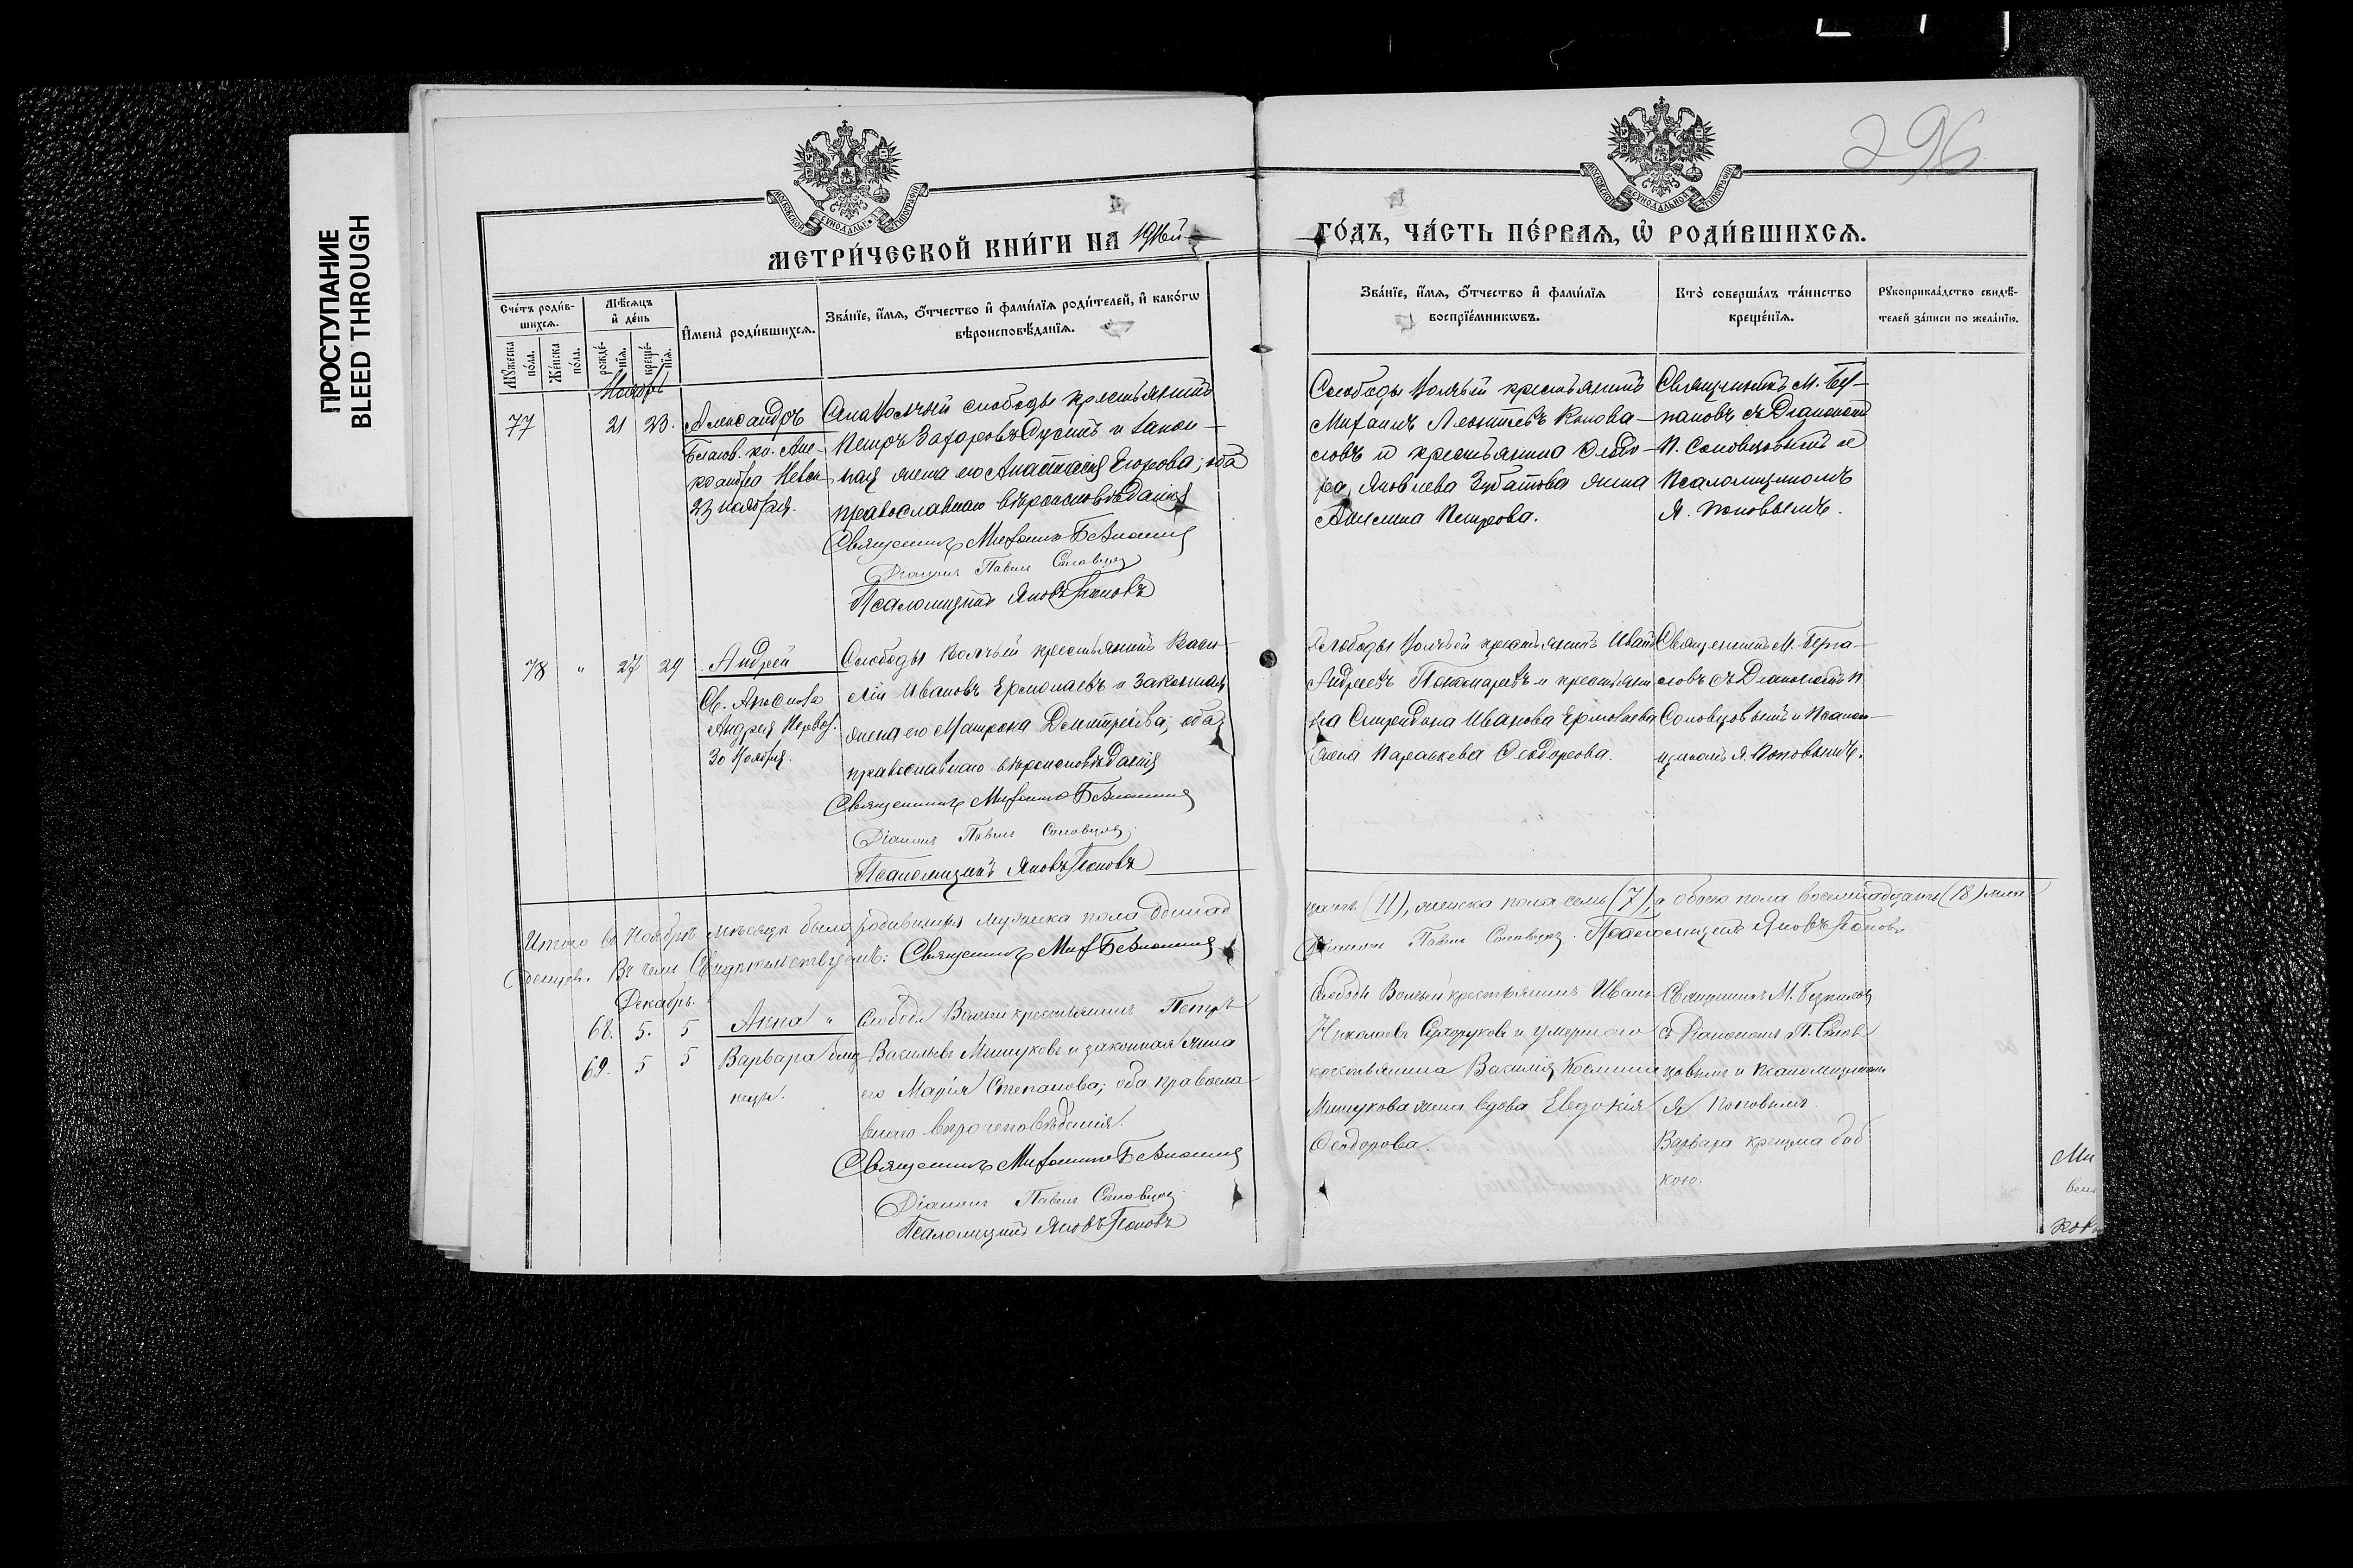 ПРОСТУПАНИЕ
BLEED THROUGH
296
МОСКОВСКОЙ СѴНОДАЛЬН ТИПОГРАФІИ
МОСКОВСКОЙ СѴНОДАЛЬНОЙ ТИПОГРАФІИ
МЕТРИ́ЧЕСКОЙ КНИ́ГИ НА 1916й
ГО́ДЪ, ЧА́СТЬ ПЕ́РВАѦ, Ѡ҆ РОДИ́ВШИХСѦ.
Сче́тъ роди́в-
шихсѧ.
Мꙋ́жеска по́ла.
Же́нска по́ла.
Мѣ́сѧцъ
и҆ де́нь
рожде́-нїѧ.
креще́-нїѧ.
И҆мена̀ роди́вшихсѧ.
Зва́нїе, и҆́мѧ, ѻ҆́тчество и҆ фами́лїѧ роди́телей, и҆ како́гѡ
вѣроисповѣ́данїѧ.
Зва́нїе, и҆́мѧ, ѻ҆́тчество и҆ фами́лїѧ
воспрїе́мникѡвъ.
Кто̀ соверша́лъ та́инство
креще́нїѧ.
Рꙋкоприкла́дство свидѣ́-
телей за́писи по жела́нїю.
Ноябрь
77 21 23. Александръ
Благов. кн. Але-
ксандра Невск
23 ноября.
слободы крестьянинъ
Петръ Захаровъ и закон-
ная жена его Анастасія Егорова; оба
православнаго вѣроисповѣданія
Священникъ Михаилъ
Діаконъ Павелъ Соловцовъ
Псаломщикъ Яковъ Поповъ
Слободы Волчьей крестьянинъ
Михаилъ Леонтьевъ Конова-
ловъ и крестьянина Ѳедо-
ра Яковлева Зубатова жена
Петрова.
Священникъ М.
съ Діакономъ
П. Соловцовымъ и
Псаломщикомъ
Я. Поповымъ.
78 " 27 29 Андрей
Св. Апостола
Андрея Первоз.
30 Ноября.
Слободы Волчьей крестьянинъ Васи-
лій Ивановъ Ермолаевъ и законная
жена его Матрона Димитріева; оба
православнаго вѣроисповѣданія
Священникъ Михаилъ
Діаконъ Павелъ Соловцовъ
Псаломщикъ Яковъ Поповъ
Слободы Волчьей крестьянинъ Иванъ
Андреевъ Пономаревъ и крестьяни
на Спиридона Иванова Ермолаева
жена Параскева Ѳеодорова.
Священникъ М.
съ Діакономъ П
Соловцовымъ и Псалом-
щикомъ Я. Поповымъ.
Итого въ Ноябрѣ мѣсяцѣ было родившихся мужеска пола одиннад
цать (11), женска пола семь (7), а обоего пола восемнадцать (18)
Въ чемъ свидѣтельствуемъ: Священникъ Мих
Діаконъ Павелъ Соловцовъ. Псаломщикъ Яковъ Поповъ
Декабрь.
68. 5. 5 Анна "
69. 5 5 Варвара близ-
нецы.
Слободы Волчьей крестьянинъ Петръ
Васильевъ Мишуковъ и законная жена
его Марія Степанова; оба правосла
внаго вѣроисповѣданія.
Священникъ Михаилъ
Діаконъ Павелъ Соловцовъ
Псаломщикъ Яковъ Поповъ
Слободы Волчьей крестьянинъ Иванъ
Николаевъ Сухоруковъ и умершаго
крестьянина Василія Космина
Мишукова жена вдова Евдокія
Ѳеодорова.
Священникъ М.
съ Діакономъ П. Солов
цовымъ и Псаломщикомъ
Я Поповымъ.
Варвара крещена баб
кою.